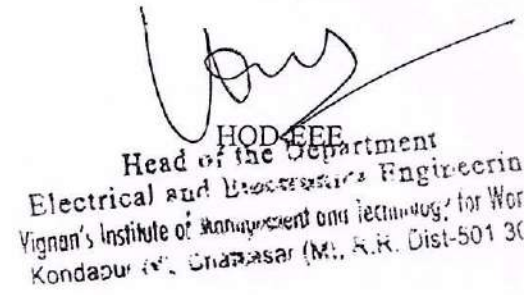 HOD-EEE
Head of the Department
Electrical and Electronics Engineerin
Vignan's Institute of Management and Technology for Wom
Kondapur (V), (M), R.R. Dist-501 30